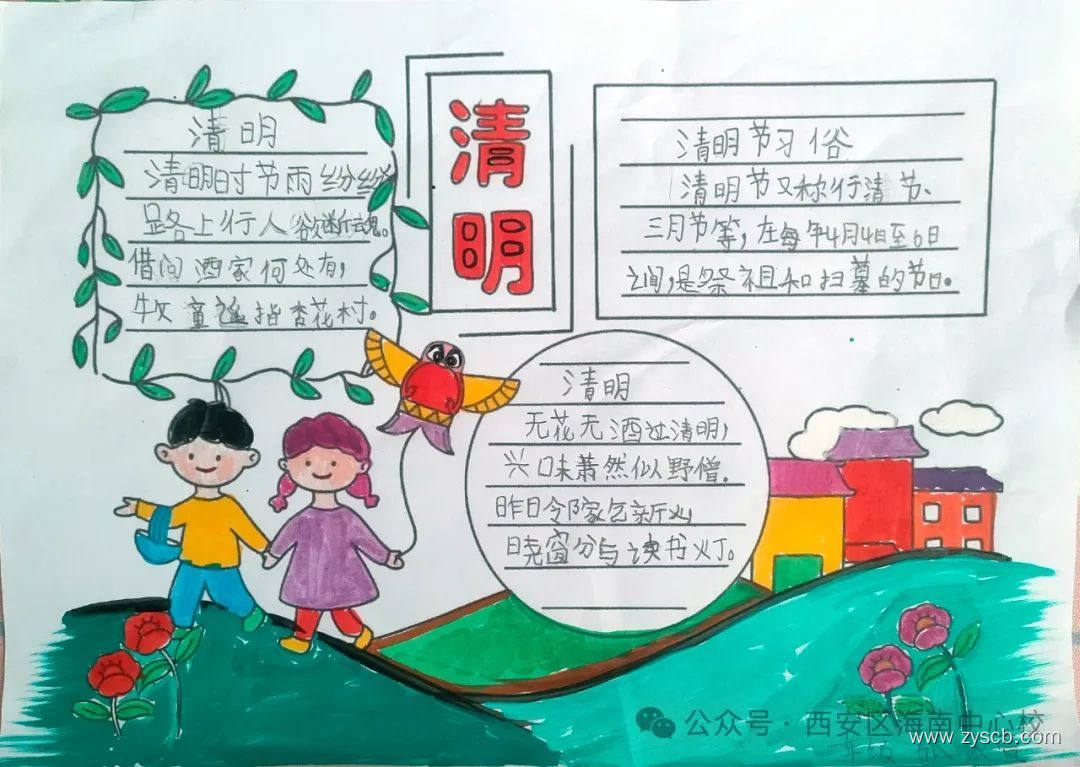 清明
清明时节雨纷纷
路上行人欲断魂。
借问酒家何处有,
牧童遥指杏花村。
清明
清明节习俗
清明节又称行清节、
三月节等,在每年4月4日至6日
之间,是祭祖和扫墓的节日。
清明
无花无酒过清明,
兴味萧然似野僧.
昨日令隊乞新火,
晓窗分与读书灯。
公众号·西安区海南中心校
www.zyscb.com